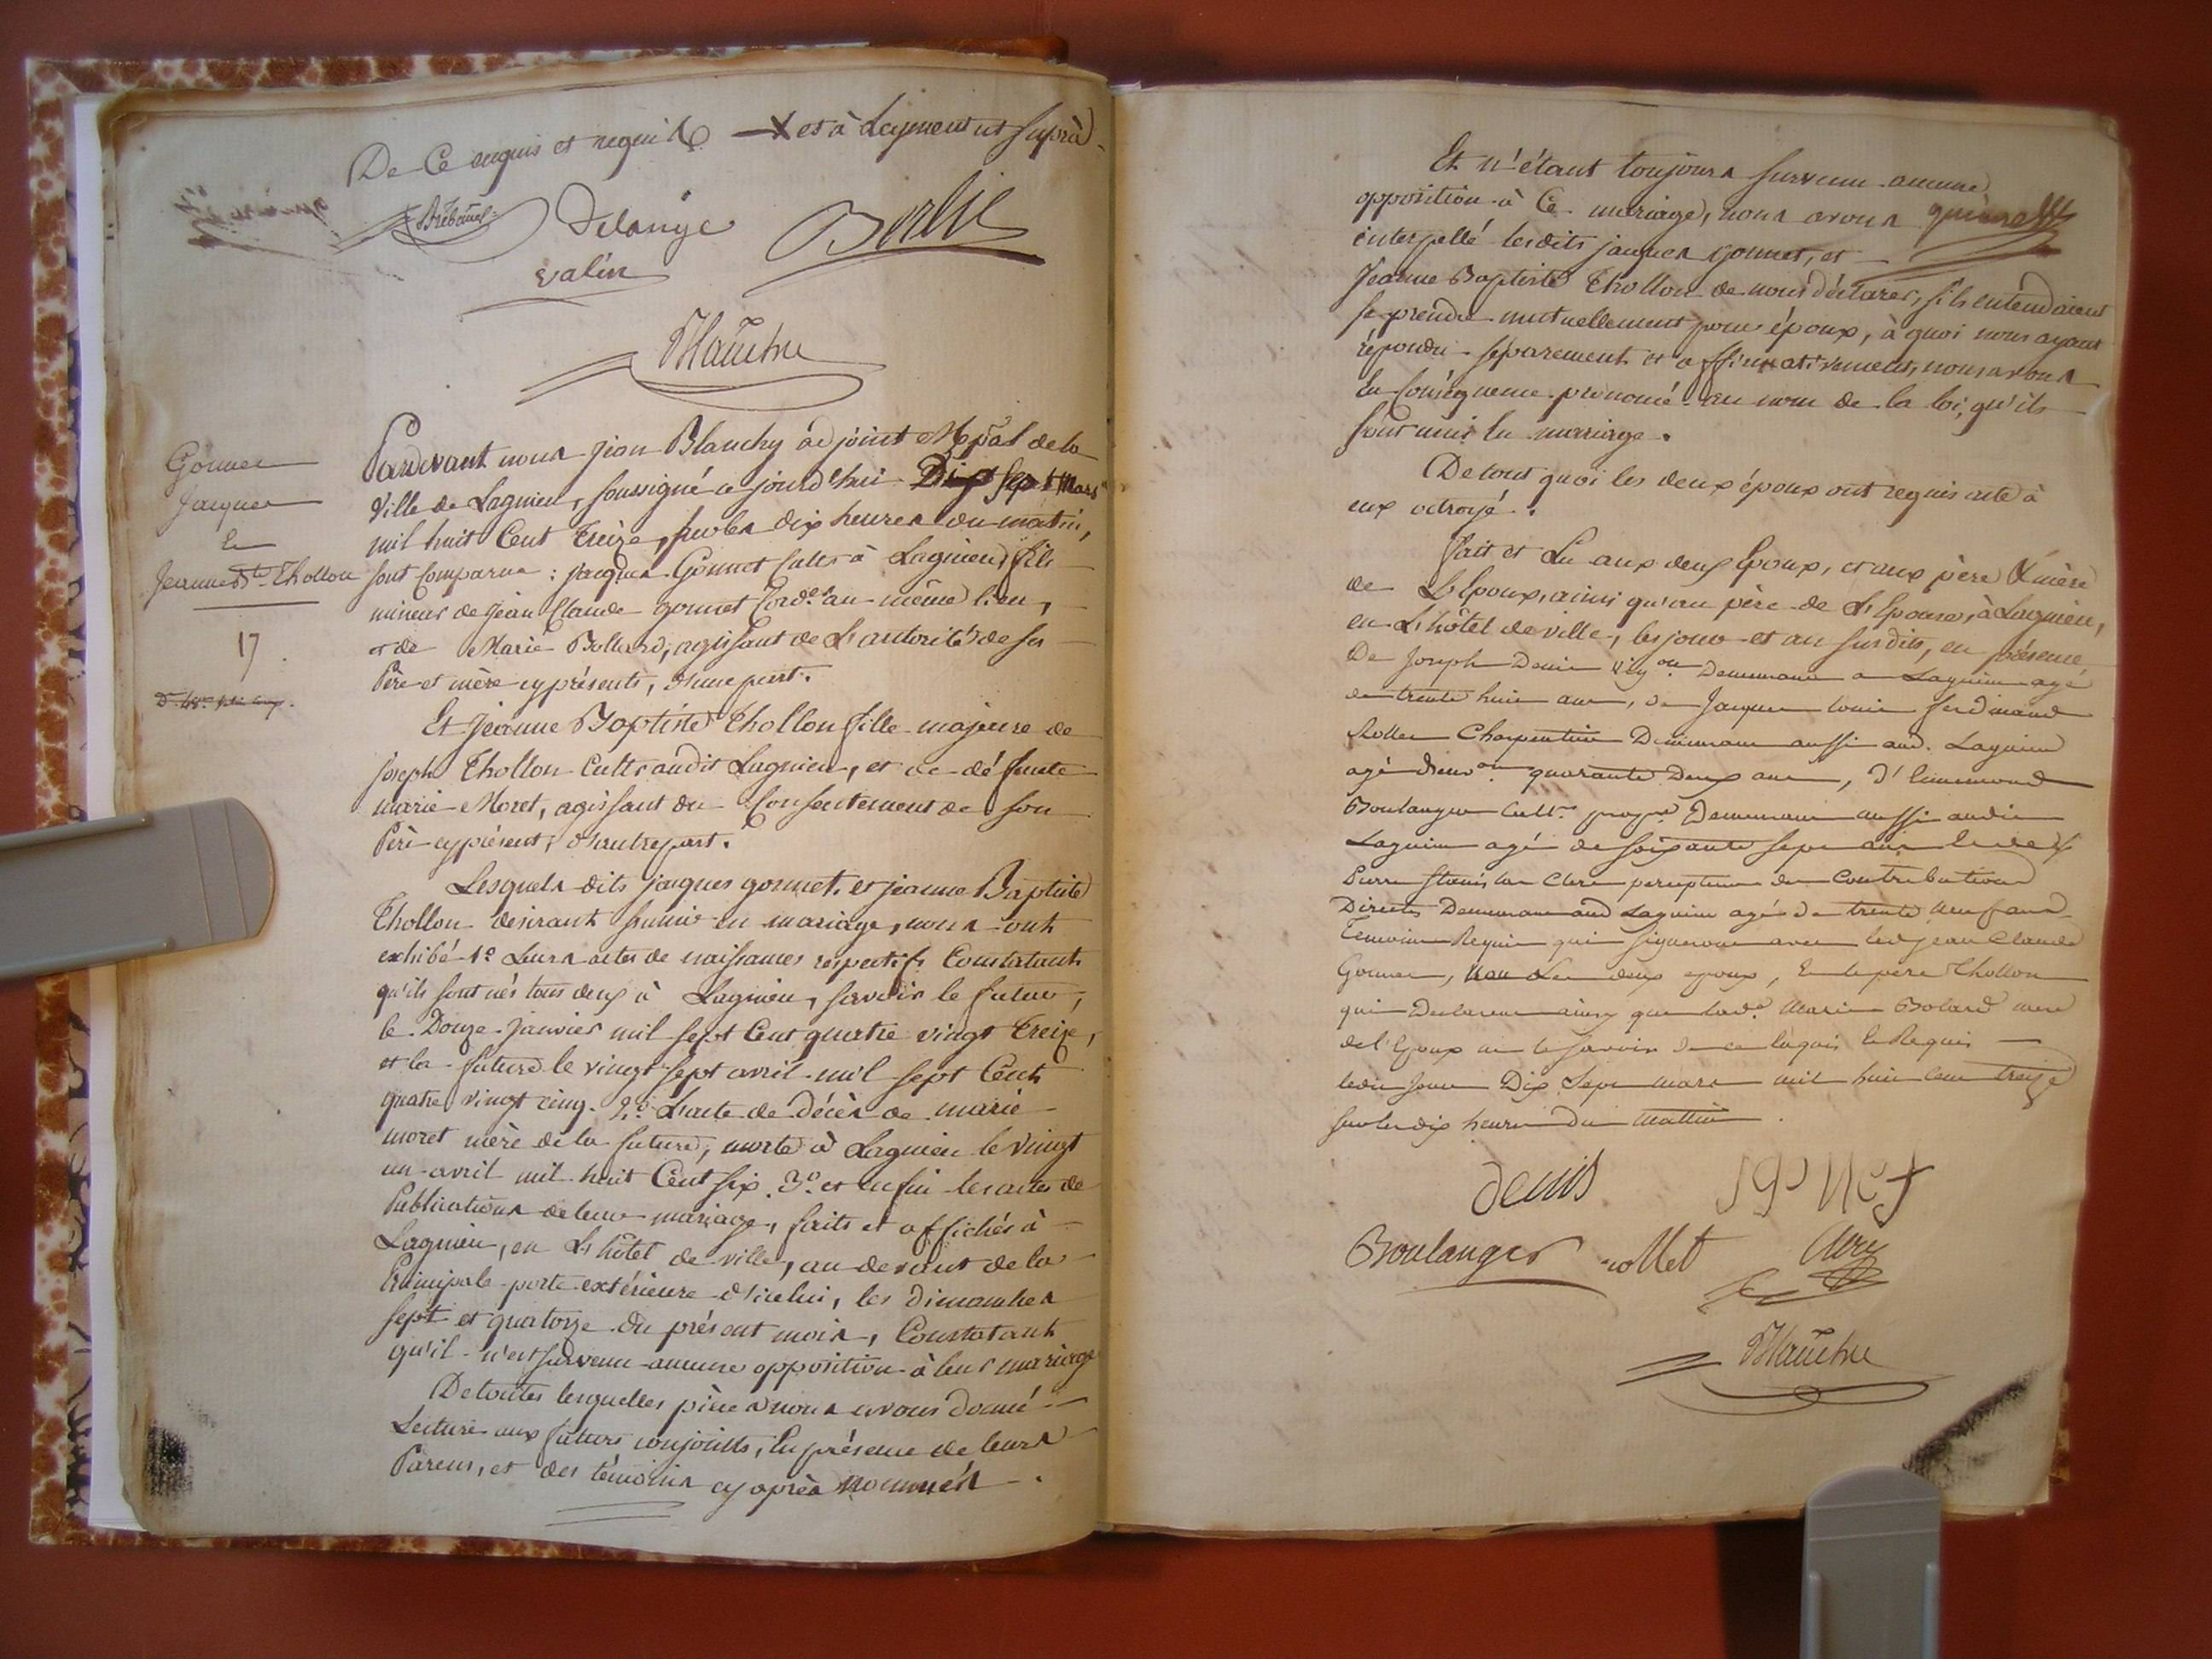 De Ce enquis et requis X et à Legement ut suprà
Trébauel Delange Berlie
valin
Blanchy
Gonnet
Jacques
Et
Jeanne Bte Thollon
17.
Pardevant nous Jean Blanchy adjoint Mpal de la
Ville de Lagnieu, soussigné ce jourd'hui Dix Sept Mars
mil huit Cent treize, sur les dix heures du matin,
sont Comparus : Jacques Gonnet Cultr à Lagnieu fils
mineur de Jean Claude gonnet Cord.er au même lieu,
et de Marie Bollard, agissant de L'autorité de ses
Père et mère cy présents, d'une part.
Et Jeanne Baptiste Thollon fille majeure de
Joseph Thollon Cultr audit Lagnieu, et de défunte
marie Moret, agissant du Consentement de son
Père cy présent, d'autre part.
Lesquels dits jaques gonnet, et jeanne Baptiste
Thollon desirant s'unir en mariage, nous ont
exhibé 1º Leurs actes de naissances respectifs Constatant
qu'ils sont nés tous deux à Lagnieu, savoir le futur,
le Douze Janvier mil sept Cent quatre vingt treize,
et la future le vingt sept avril mil sept Cent
quatre vingt cinq. 2º L'acte de décès de marie
moret mère de la future, morte à Lagnieu le vingt
un avril mil huit Cent six. 3º et enfin les actes de
Publications de leur mariage, faits et affichés à
Lagnieu, en L'hôtel de ville, au devant de la
Principale porte extérieure d'icelui, les dimanches
sept et quatorze du présent mois, Constatant
qu'il n'est survenu aucune opposition à leur mariage
De toutes lesquelles pièces nous avons donné
Lecture aux futurs conjoints, En présence de leurs
Parens, et des témoins cy après nommés.
Et n'étant toujours survenu aucune
opposition à Ce mariage, nous avons
interpellé lesdits jaques gonnet, et
Jeanne Baptiste Thollon de nous déclarer, s'ils entendaient
se prendre mutuellement pour époux, à quoi nous ayant
répondu séparement et affirmativement, nous avons
En Conséquence prononcé au nom de la loi, qu'ils
sont unis En mariage.
De tout quoi les deux époux ont requis acte à
eux octroyé.
fait et Lu aux deux Epoux, et aux père & mère
de L'Epoux, ainsi qu'au père de L'Epouse, à Lagnieu,
en L'hôtel de ville, les jour et an susdits, en présence
De Joseph Denis Demeurant a Lagnieu agé
de trente huit ans, de Jacques Louis ferdinand
Rollet Charpentier Demeurant aussi aud. Lagnieu
agé d'env.on quarante Deux ans, d'Ennemond
Boulanger Cultr propre Demeurant aussi audit
Lagnieu agé de soixante sept ans et de
Pierre Stanislas Clerc percepteur des Contributions
Directes Demeurant aud Lagnieu agé de trente neuf ans
Temoins Requis qui signeront avec led Jean Claude
Gonnet, non Les deux epoux, Et le pere Thollon
qui Declarent ainsy que lad.e Marie Bolard mere
de l'Epoux ne le savoir De ce Enquis Et Requis
ledit Jour Dix Sept mars mil huit Cent treize
sur les dix heures Du mattin.
denis gonnet
Boulanger rollet
Blanchy